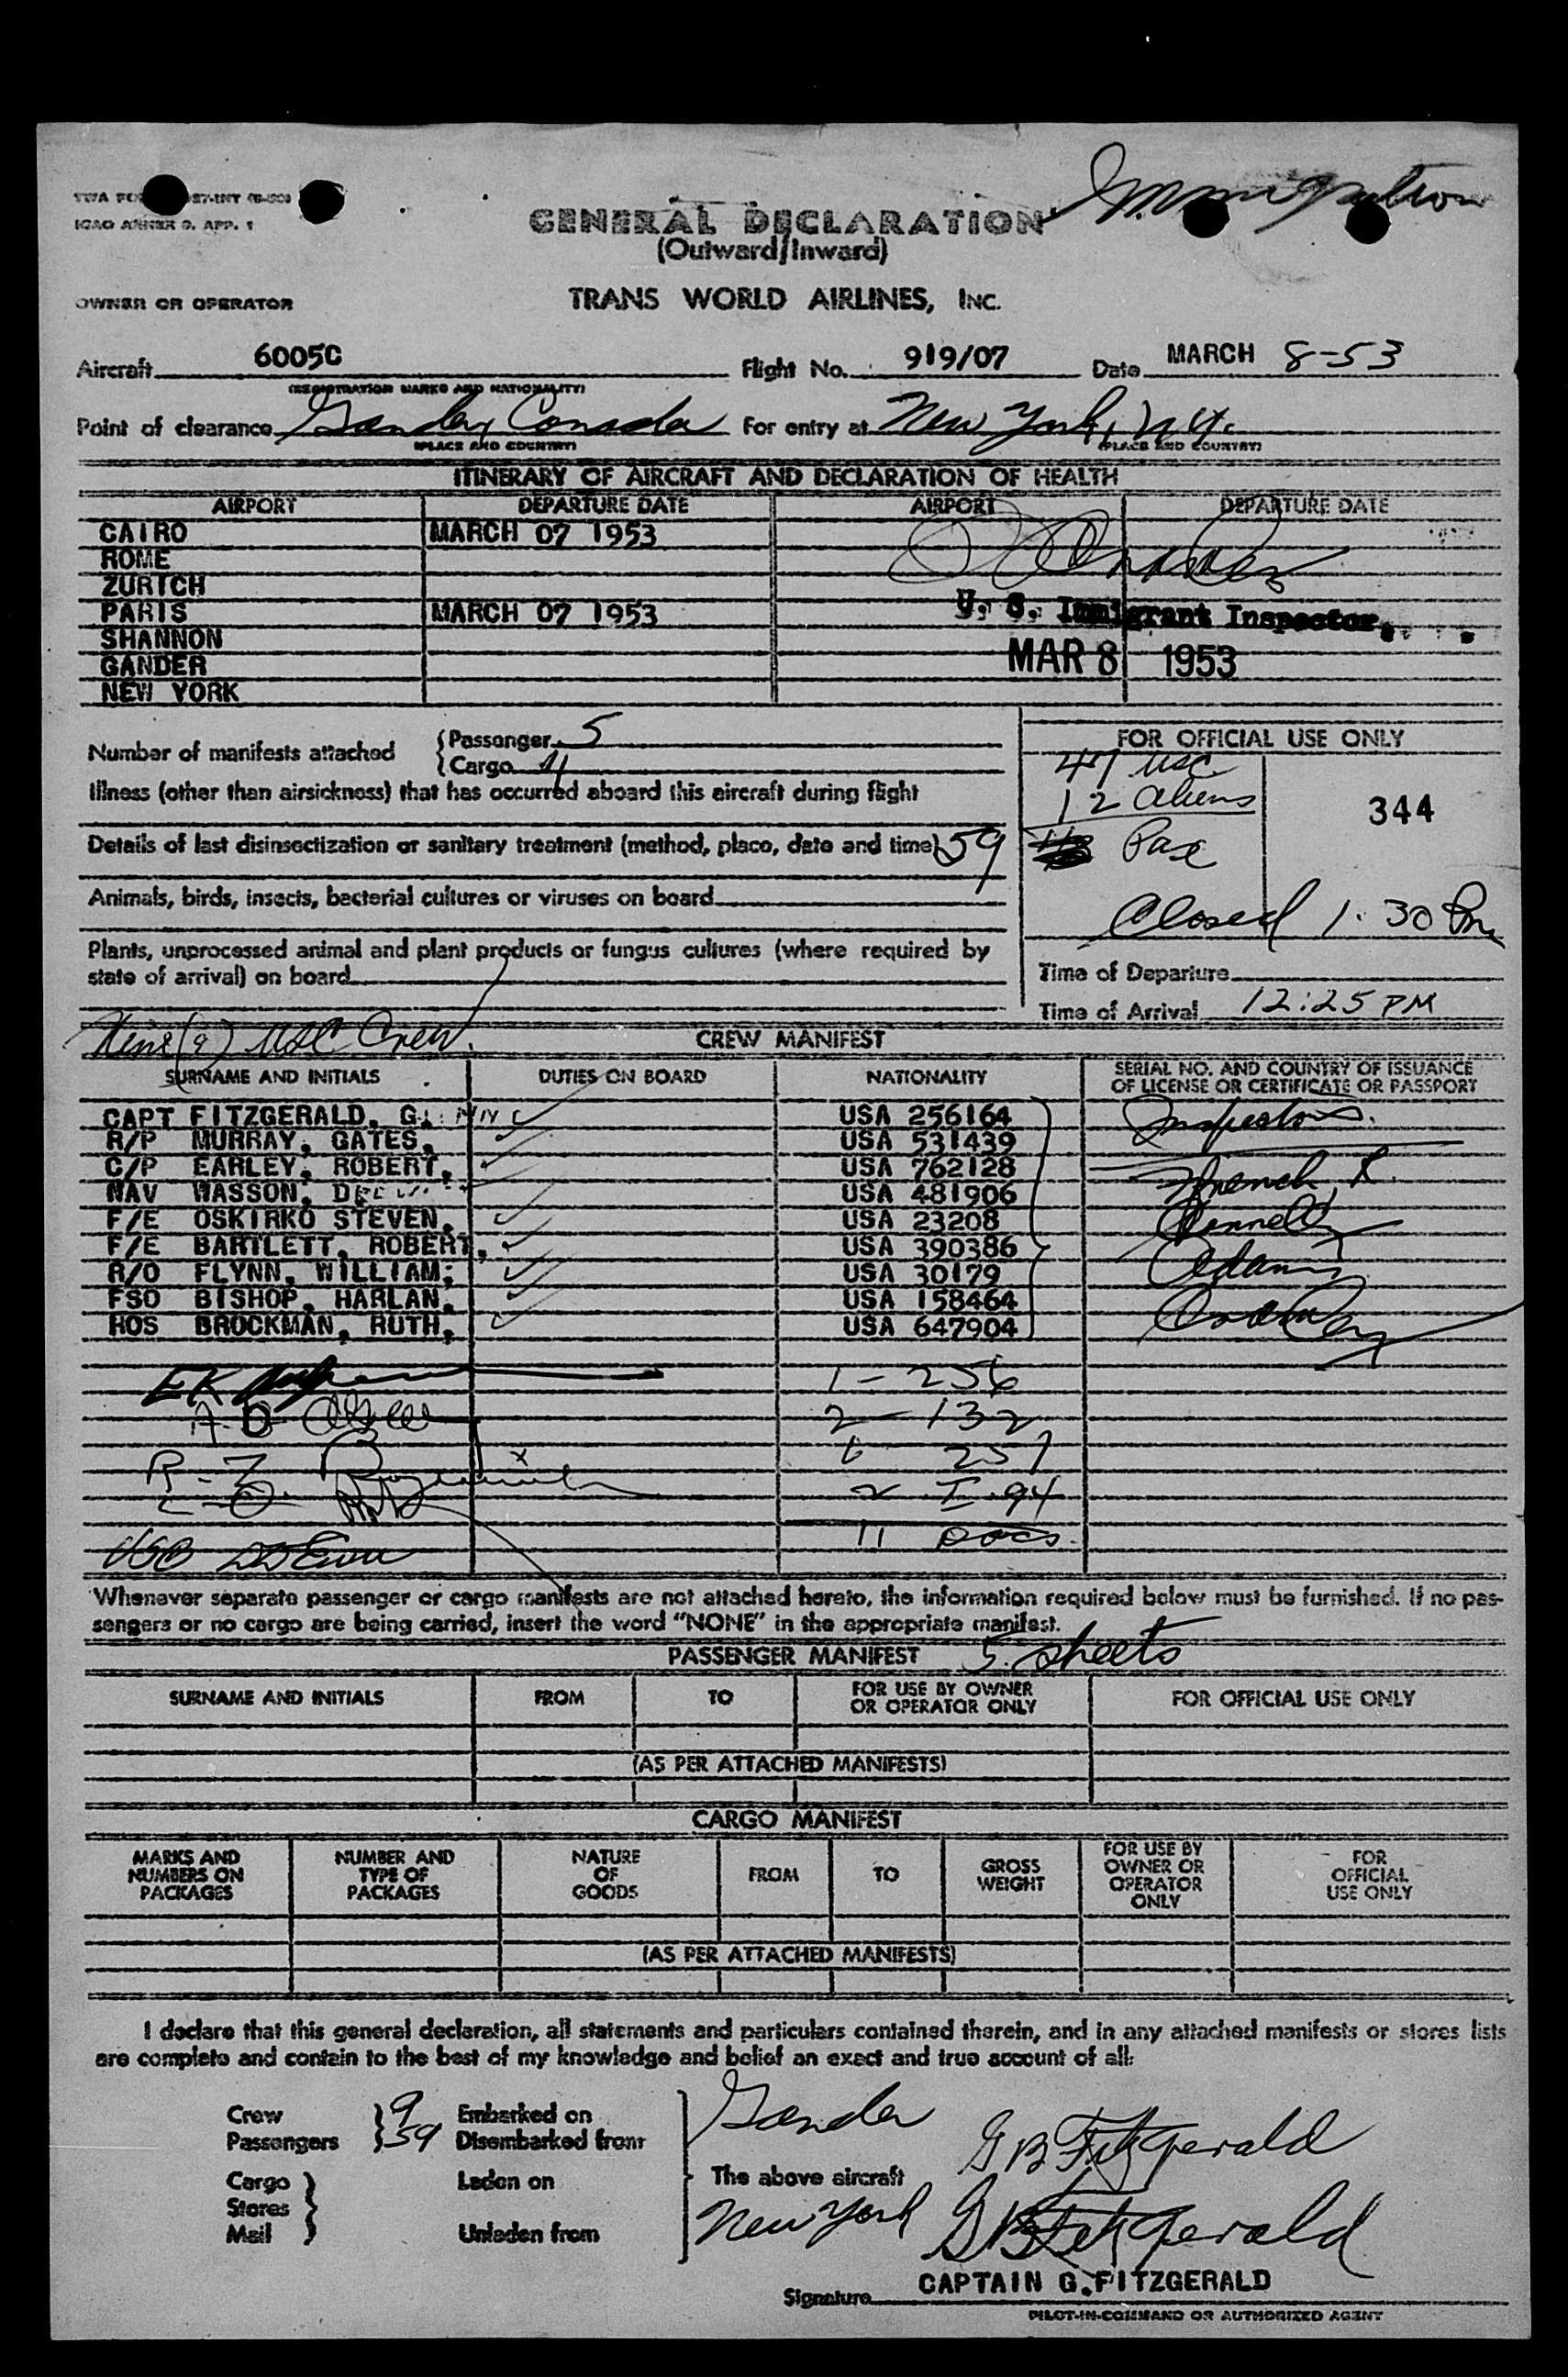 Immigration
ICAO ANNEX 9. APP. 1
GENERAL DECLARATION
(Outward/Inward)
OWNER OR OPERATOR TRANS WORLD AIRLINES, INC.
Aircraft 6005C Flight No. 919/07 Date MARCH 8-53
(REGISTRATION MARKS AND NATIONALITY)
Point of clearance Gander, Canada For entry at New York, N.Y.
(PLACE AND COUNTRY) (PLACE AND COUNTRY)
ITINERARY OF AIRCRAFT AND DECLARATION OF HEALTH
AIRPORT DEPARTURE DATE AIRPORT DEPARTURE DATE
CAIRO MARCH 07 1953
ROME
ZURICH
PARIS MARCH 07 1953
U. S. Immigrant Inspector
SHANNON
GANDER MAR 8 1953
NEW YORK
Number of manifests attached Passenger 5
Cargo 4
Illness (other than airsickness) that has occurred aboard this aircraft during flight
Details of last disinsectization or sanitary treatment (method, place, date and time)
Animals, birds, insects, bacterial cultures or viruses on board
Plants, unprocessed animal and plant products or fungus cultures (where required by
state of arrival) on board
FOR OFFICIAL USE ONLY
47 USC
12 Aliens
344
59 Pax
Closed 1:30 Pm
Time of Departure
Time of Arrival 12:25 PM
Nine (9) USC Crew.
CREW MANIFEST
SURNAME AND INITIALS DUTIES ON BOARD NATIONALITY SERIAL NO. AND COUNTRY OF ISSUANCE
OF LICENSE OR CERTIFICATE OR PASSPORT
CAPT FITZGERALD, G. USA 256164 Inspectors.
R/P MURRAY, GATES, USA 531439
C/P EARLEY, ROBERT, USA 762128 French, R.
NAV WASSON, USA 481906
F/E OSKIRKO STEVEN, USA 23208 Kennelly
F/E BARTLETT, ROBERT, USA 390386
R/O FLYNN, WILLIAM, USA 30179 Adams
FSO BISHOP, HARLAN, USA 158464
HOS BROCKMAN, RUTH, USA 647904
1 - 256
2 - 132
6 257
2 I-94
11 Docs.
Whenever separate passenger or cargo manifests are not attached hereto, the information required below must be furnished. If no pas-
sengers or no cargo are being carried, insert the word "NONE" in the appropriate manifest.
PASSENGER MANIFEST 5. sheets
SURNAME AND INITIALS FROM TO FOR USE BY OWNER OR OPERATOR ONLY FOR OFFICIAL USE ONLY
(AS PER ATTACHED MANIFESTS)
CARGO MANIFEST
MARKS AND NUMBERS ON PACKAGES NUMBER AND TYPE OF PACKAGES NATURE OF GOODS FROM TO GROSS WEIGHT FOR USE BY OWNER OR OPERATOR ONLY FOR OFFICIAL USE ONLY
(AS PER ATTACHED MANIFESTS)
I declare that this general declaration, all statements and particulars contained therein, and in any attached manifests or stores lists
are complete and contain to the best of my knowledge and belief an exact and true account of all:
Crew 9 Embarked on Gander G B Fitzgerald
Passengers 59 Disembarked from
Cargo Laden on The above aircraft
Stores
Mail Unladen from New York G B Fitzgerald
Signature CAPTAIN G. FITZGERALD
PILOT-IN-COMMAND OR AUTHORIZED AGENT